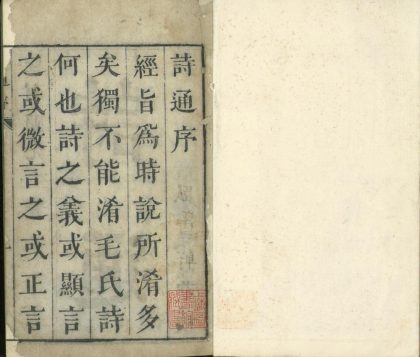 詩通序
經旨爲時說所淆多
矣獨不能淆毛氏詩
何也詩之義或顯言
之或微言之或正言